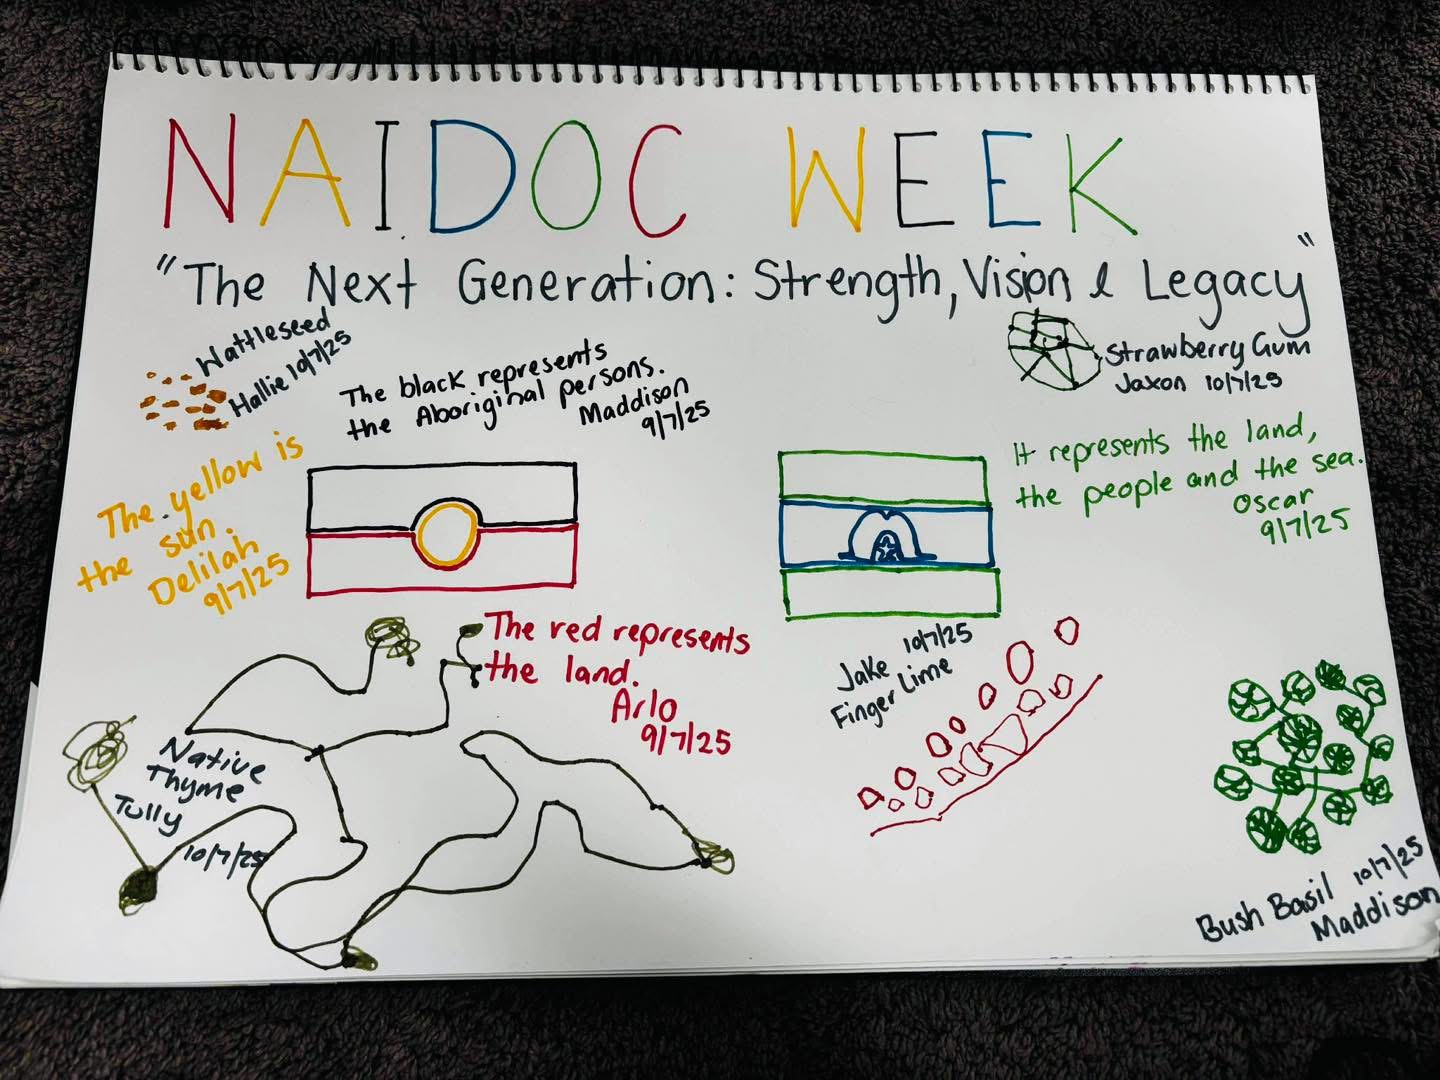 NAIDOC WEEK
"The Next Generation: Strength, Vision & Legacy"
Wattleseed
Hallie 10/7/25
The black represents
the Aboriginal persons.
Maddison
9/7/25
Strawberry Gum
Jaxon 10/7/25
The yellow is
the sun.
Delilah
9/7/25
It represents the land,
the people and the sea.
Oscar
9/7/25
The red represents
the land.
Arlo
9/7/25
10/7/25
Jake
Finger Lime
Native
Thyme
Tully
10/7/25
Bush Basil 10/7/25
Maddison